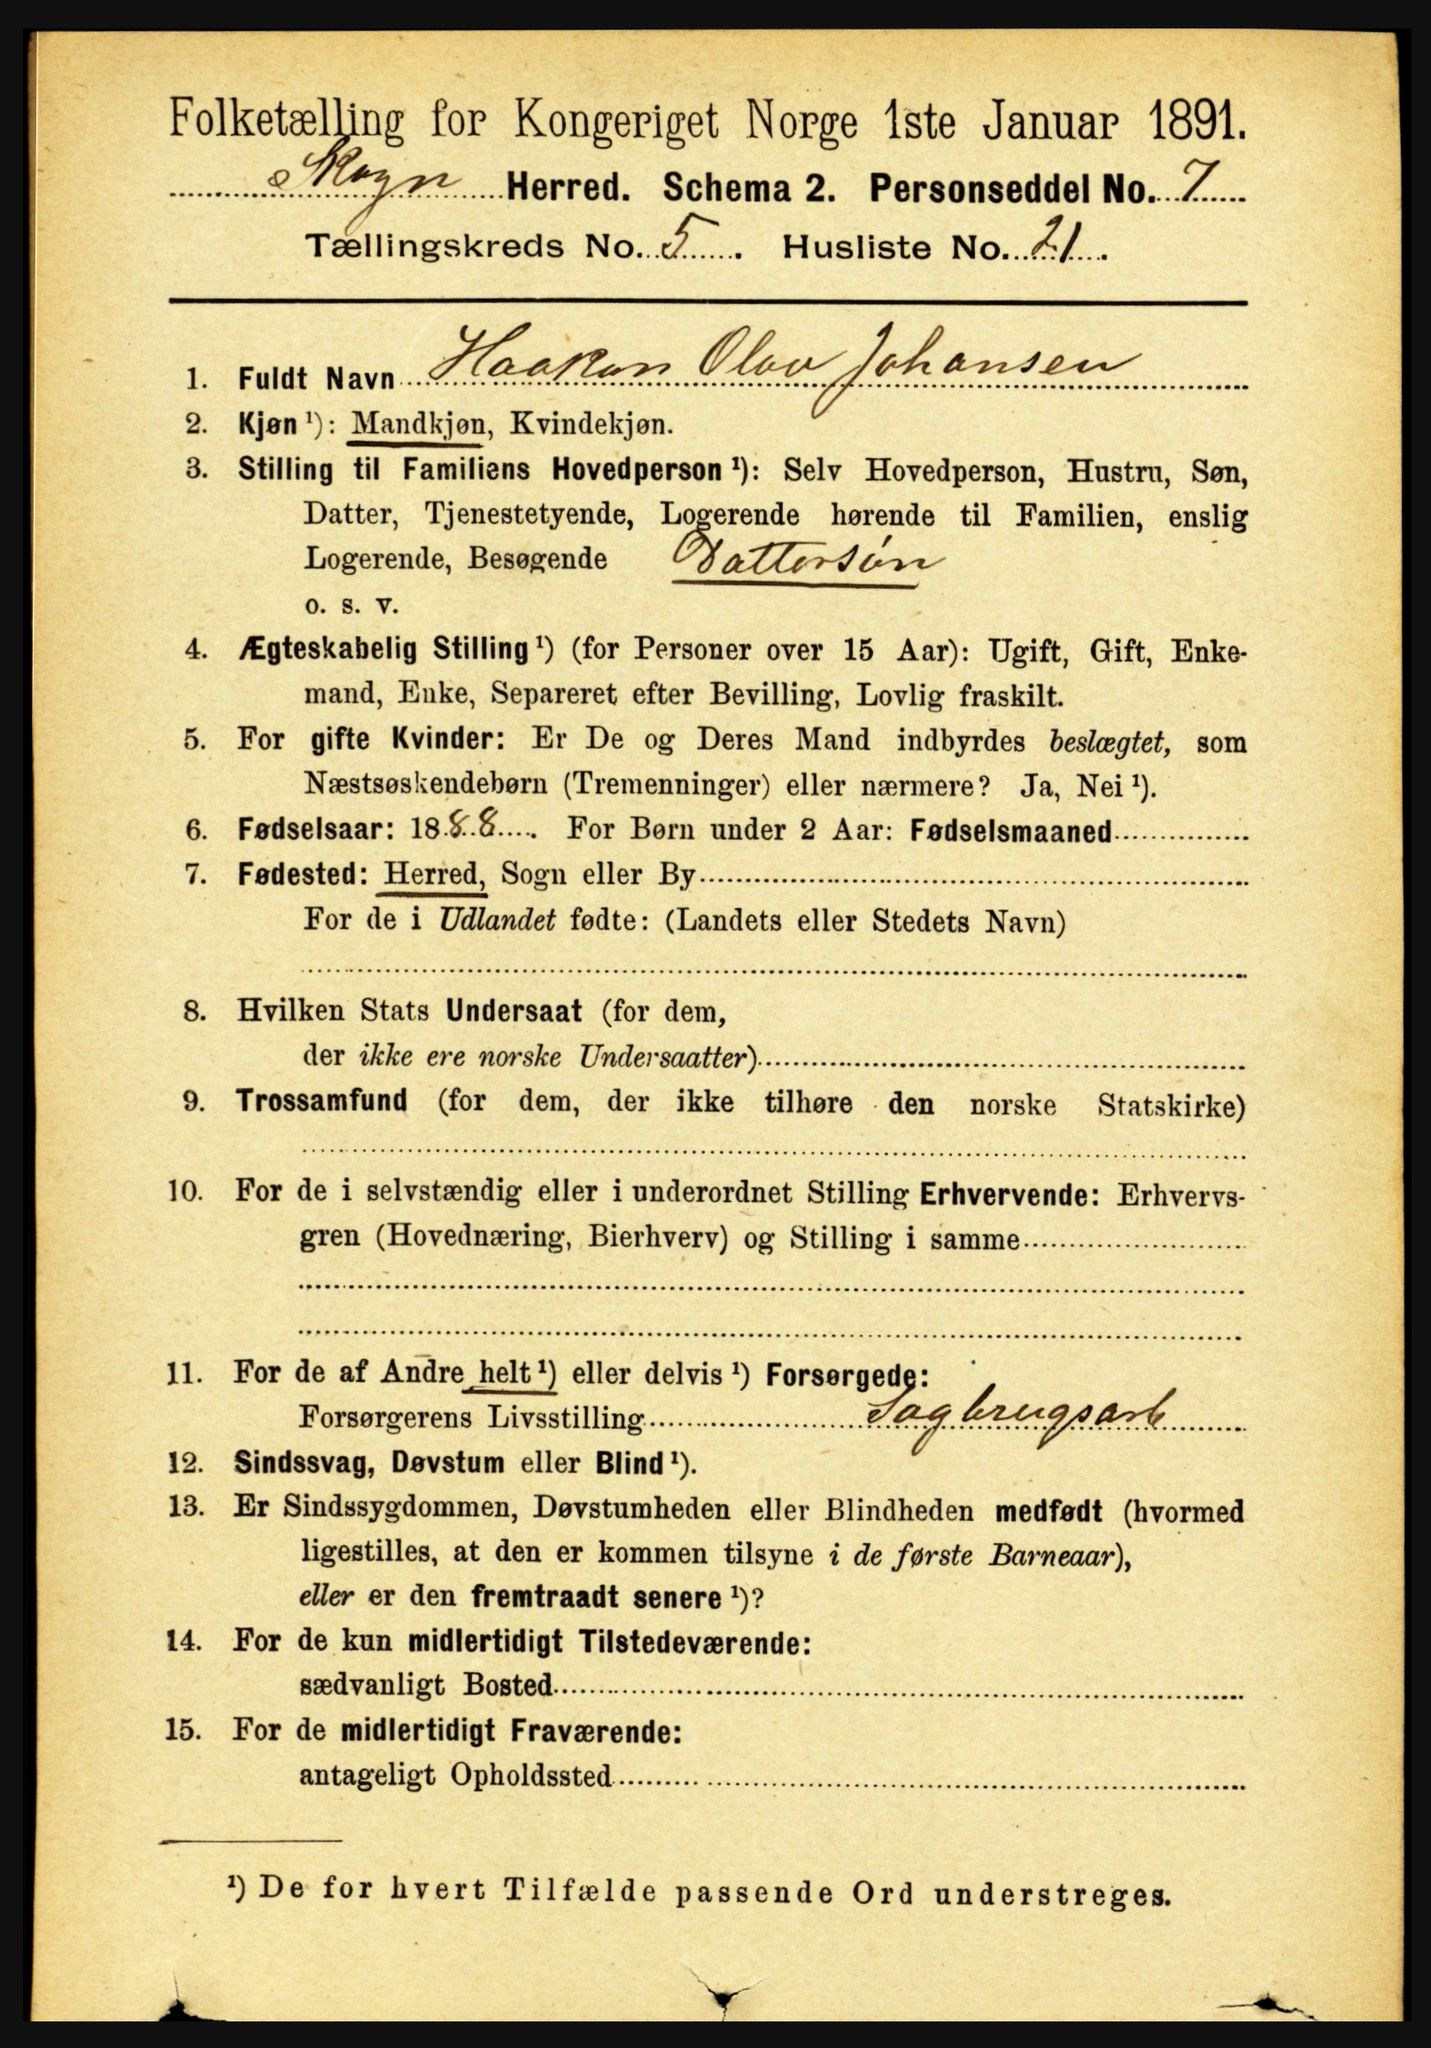 Folketælling for Kongeriget Norge 1ste Januar 1891.
Skogn Herred. Schema 2. Personseddel No. 7
Tællingskreds No. 5. Husliste No. 21.
1. Fuldt Navn Haakon Olav Johansen
2. Kjøn ¹): Mandkjøn, Kvindekjøn.
3. Stilling til Familiens Hovedperson ¹): Selv Hovedperson, Hustru, Søn,
Datter, Tjenestetyende, Logerende hørende til Familien, enslig
Logerende, Besøgende Dattersøn
o. s. v.
4. Ægteskabelig Stilling ¹) (for Personer over 15 Aar): Ugift, Gift, Enke-
mand, Enke, Separeret efter Bevilling, Lovlig fraskilt.
5. For gifte Kvinder: Er De og Deres Mand indbyrdes beslægtet, som
Næstsøskendebørn (Tremenninger) eller nærmere? Ja, Nei ¹).
6. Fødselsaar: 1888. For Børn under 2 Aar: Fødselsmaaned
7. Fødested: Herred, Sogn eller By
For de i Udlandet fødte: (Landets eller Stedets Navn)
8. Hvilken Stats Undersaat (for dem,
der ikke ere norske Undersaatter)
9. Trossamfund (for dem, der ikke tilhøre den norske Statskirke)
10. For de i selvstændig eller i underordnet Stilling Erhvervende: Erhvervs-
gren (Hovednæring, Bierhverv) og Stilling i samme
11. For de af Andre helt ¹) eller delvis ¹) Forsørgede:
Forsørgerens Livsstilling Sagbrugsarb
12. Sindssvag, Døvstum eller Blind ¹).
13. Er Sindssygdommen, Døvstumheden eller Blindheden medfødt (hvormed
ligestilles, at den er kommen tilsyne i de første Barneaar),
eller er den fremtraadt senere ¹)?
14. For de kun midlertidigt Tilstedeværende:
sædvanligt Bosted
15. For de midlertidigt Fraværende:
antageligt Opholdssted
¹) De for hvert Tilfælde passende Ord understreges.